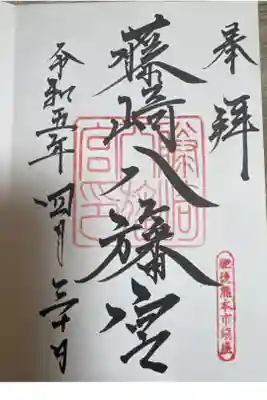 奉拝
藤崎八旛宮
令和五年四月三十日
肥後熊本市鎮座